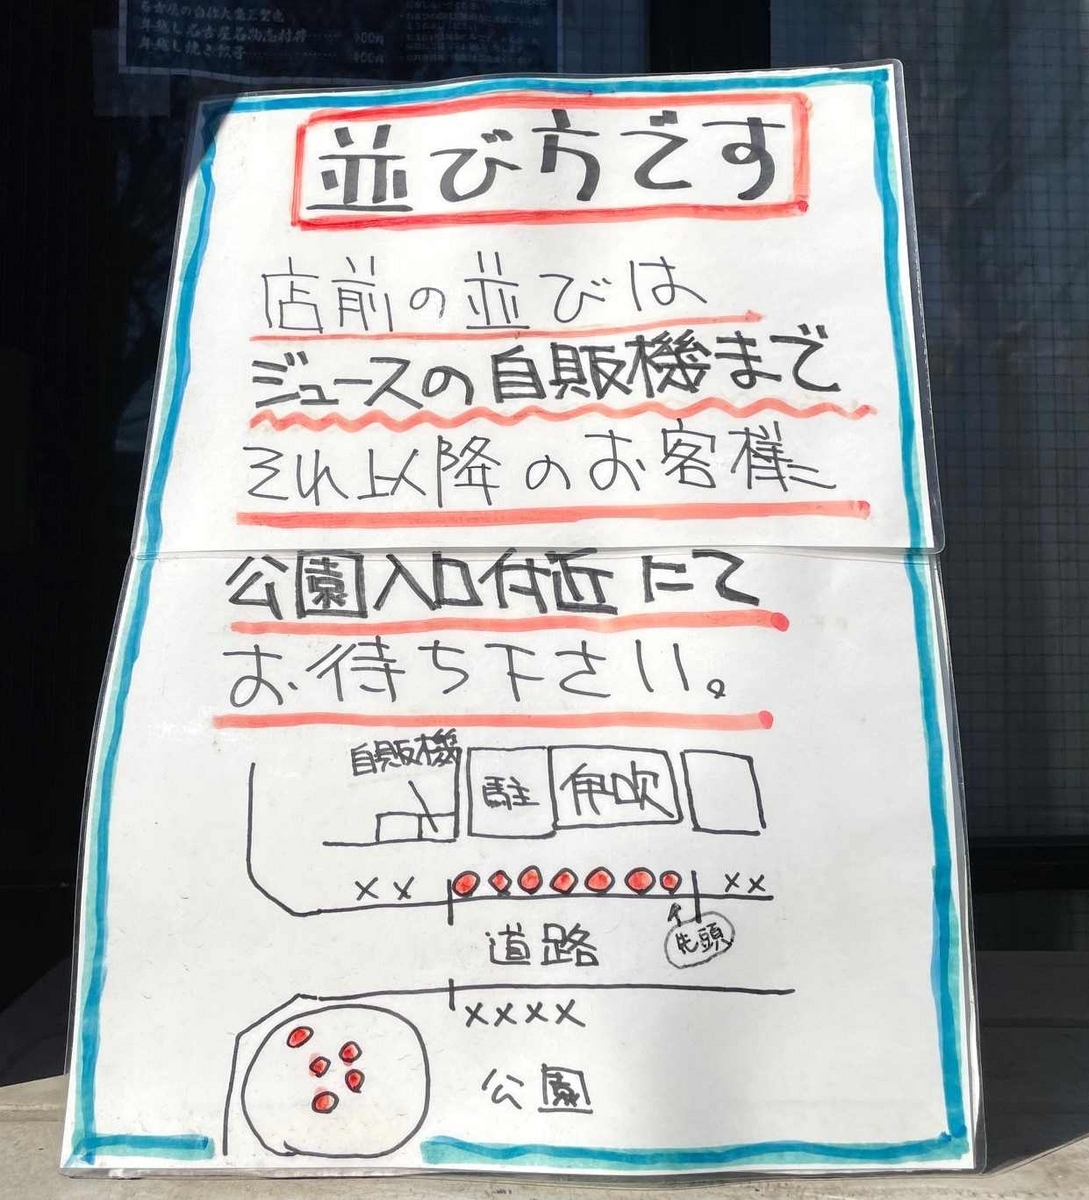 並び方です
店前の並びは
ジュースの自販機まで
それ以降のお客様は
公園入口付近にて
お待ち下さい。
自販機
駐
伊吹
×× ××
道路
先頭
××××
公園